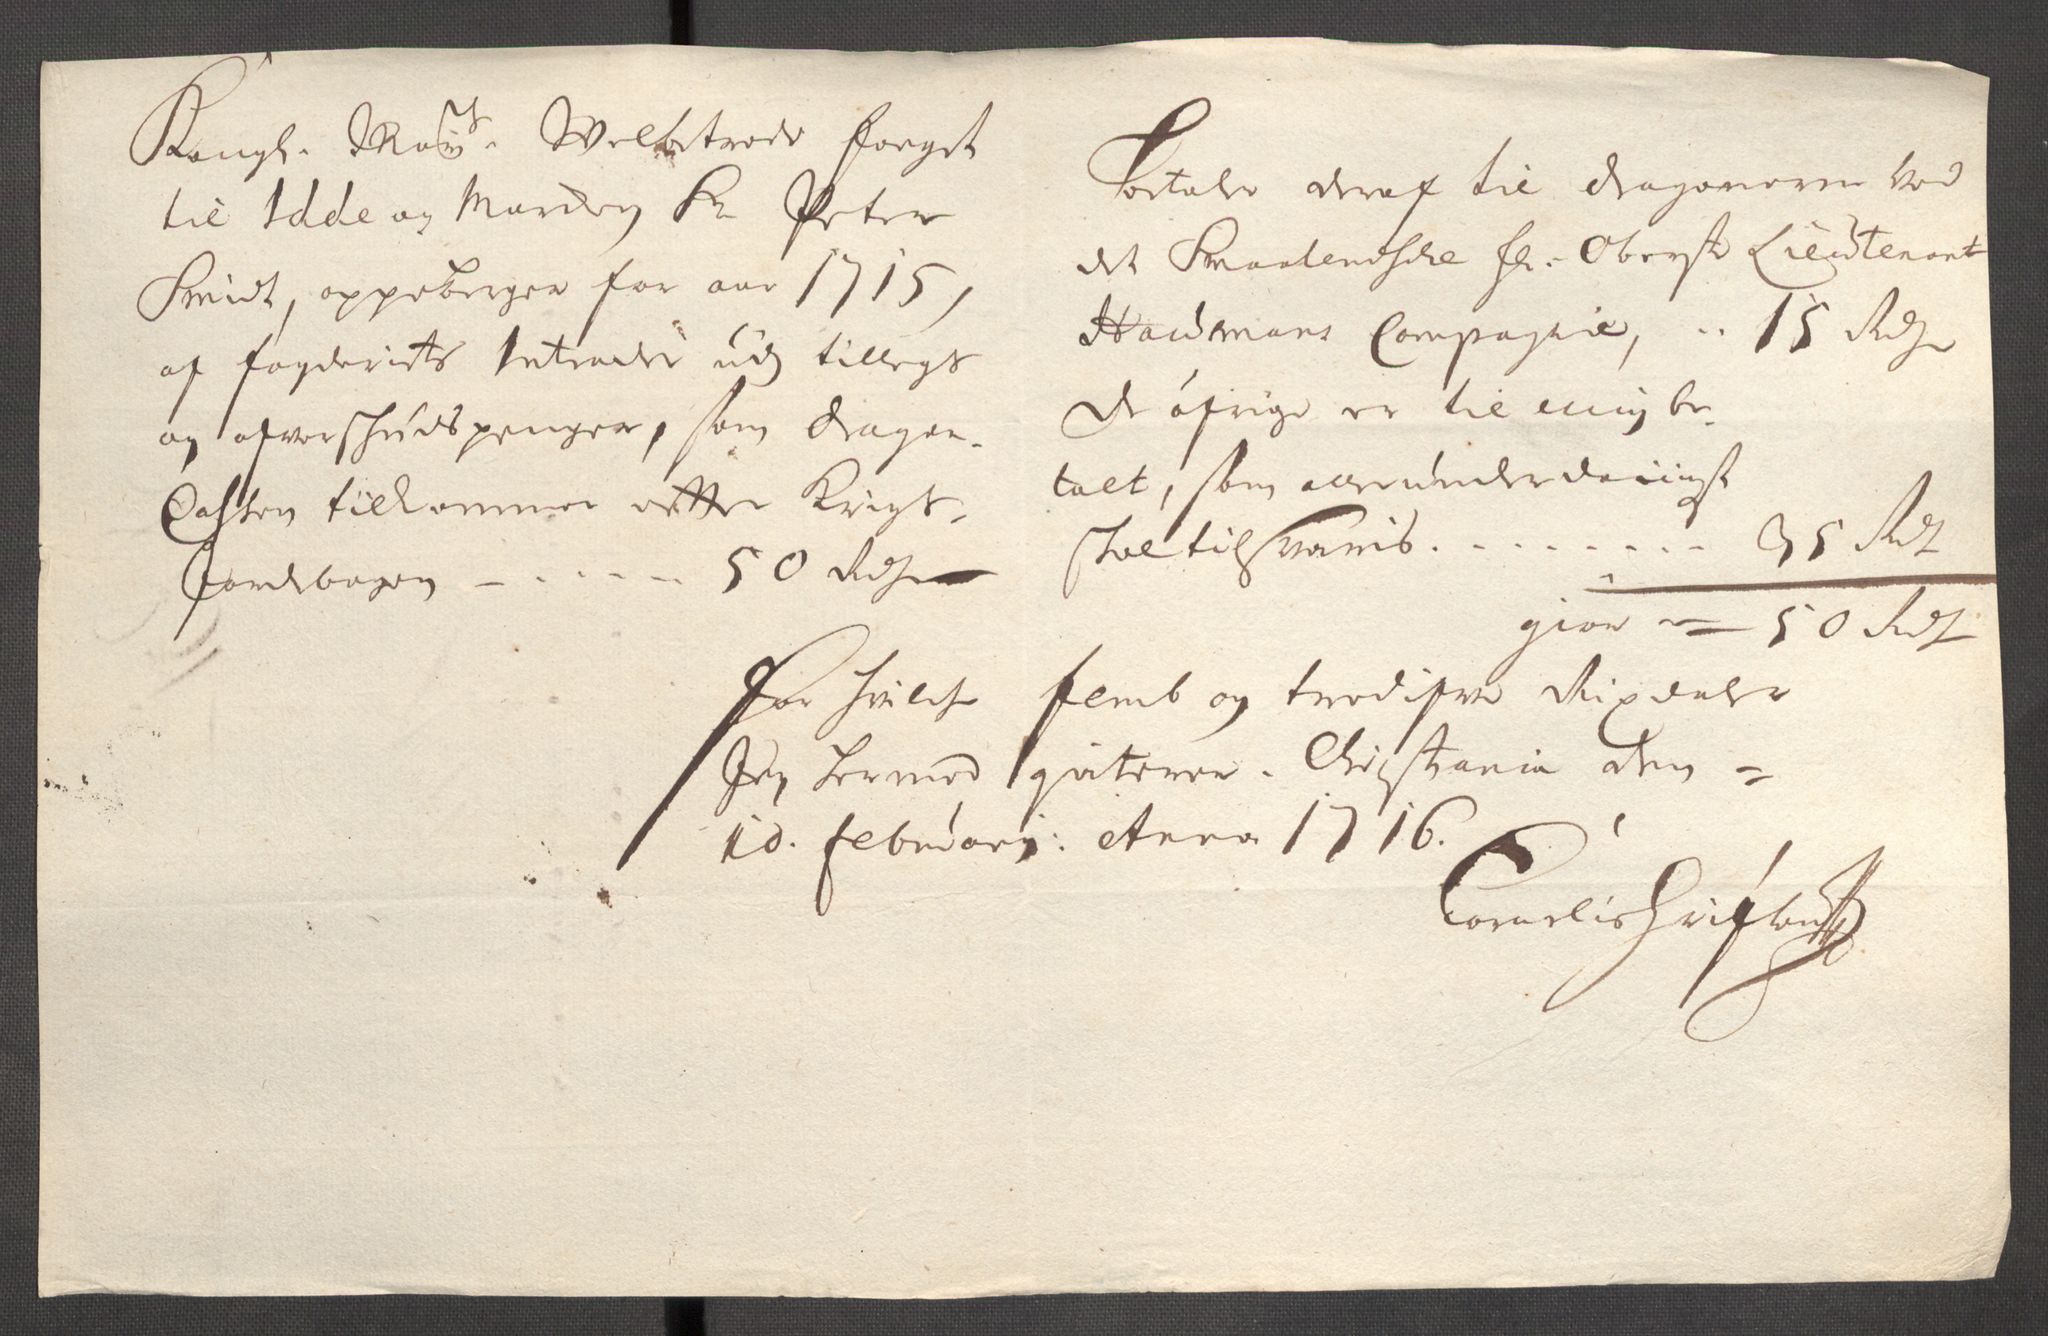 Kongl. May:ts Welbetrode Foeget
til Idde og Marcken Hr Peter
Smidt, oppeberger for aar 1715,
af fogderiets Intrader udj tillegs
og ofverschudspenger, som dragon-
Cassen tilkommer efter Krigs-
Jordebogen - - - - - - 50 Rdr
Betaler deraf til dragonerne Ved
det Smaalendsche hr. Oberst Lieutenant
Hausmans Compagnie, .. 15 Rdr
De öfrige er til mig be-
talt, som allerunderdanigst
schal tilsvaris. - - - - - - - - 35 Rdr
giör = 50 Rdr
For hvilche femb og tredifve Rixdaler
Jeg hermed qviterer. Christiania den =
10. Februarij: Anno 1716.
Cornelis